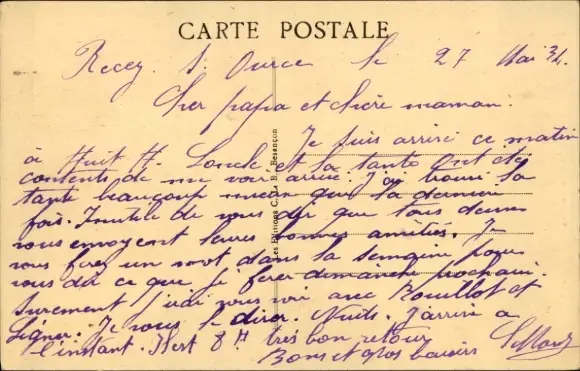 CARTE POSTALE
Recey s. Ource le 27 Mai 34
Cher papa et chère maman.
Je suis arrivé ce matin
à Huit H. et la tante ont été
contents de me voir arrivé. J'ai trouvé la
tante beaucoup mieux que la dernière
fois. Inutile de vous dir que tous deux
vous envoyent leures bonnes amitiés. Je
vous ferez un mot dans la semaine pour
vous dir ce que je ferez dimanche prochain.
Surement j'irai vous voir avec Rouillot et
Je vous le direr. Nuits. J'arrive a
l'instant. Il est 8 H très bon retour
Bons et gros baisers
Les Editions C. L. B., Besançon